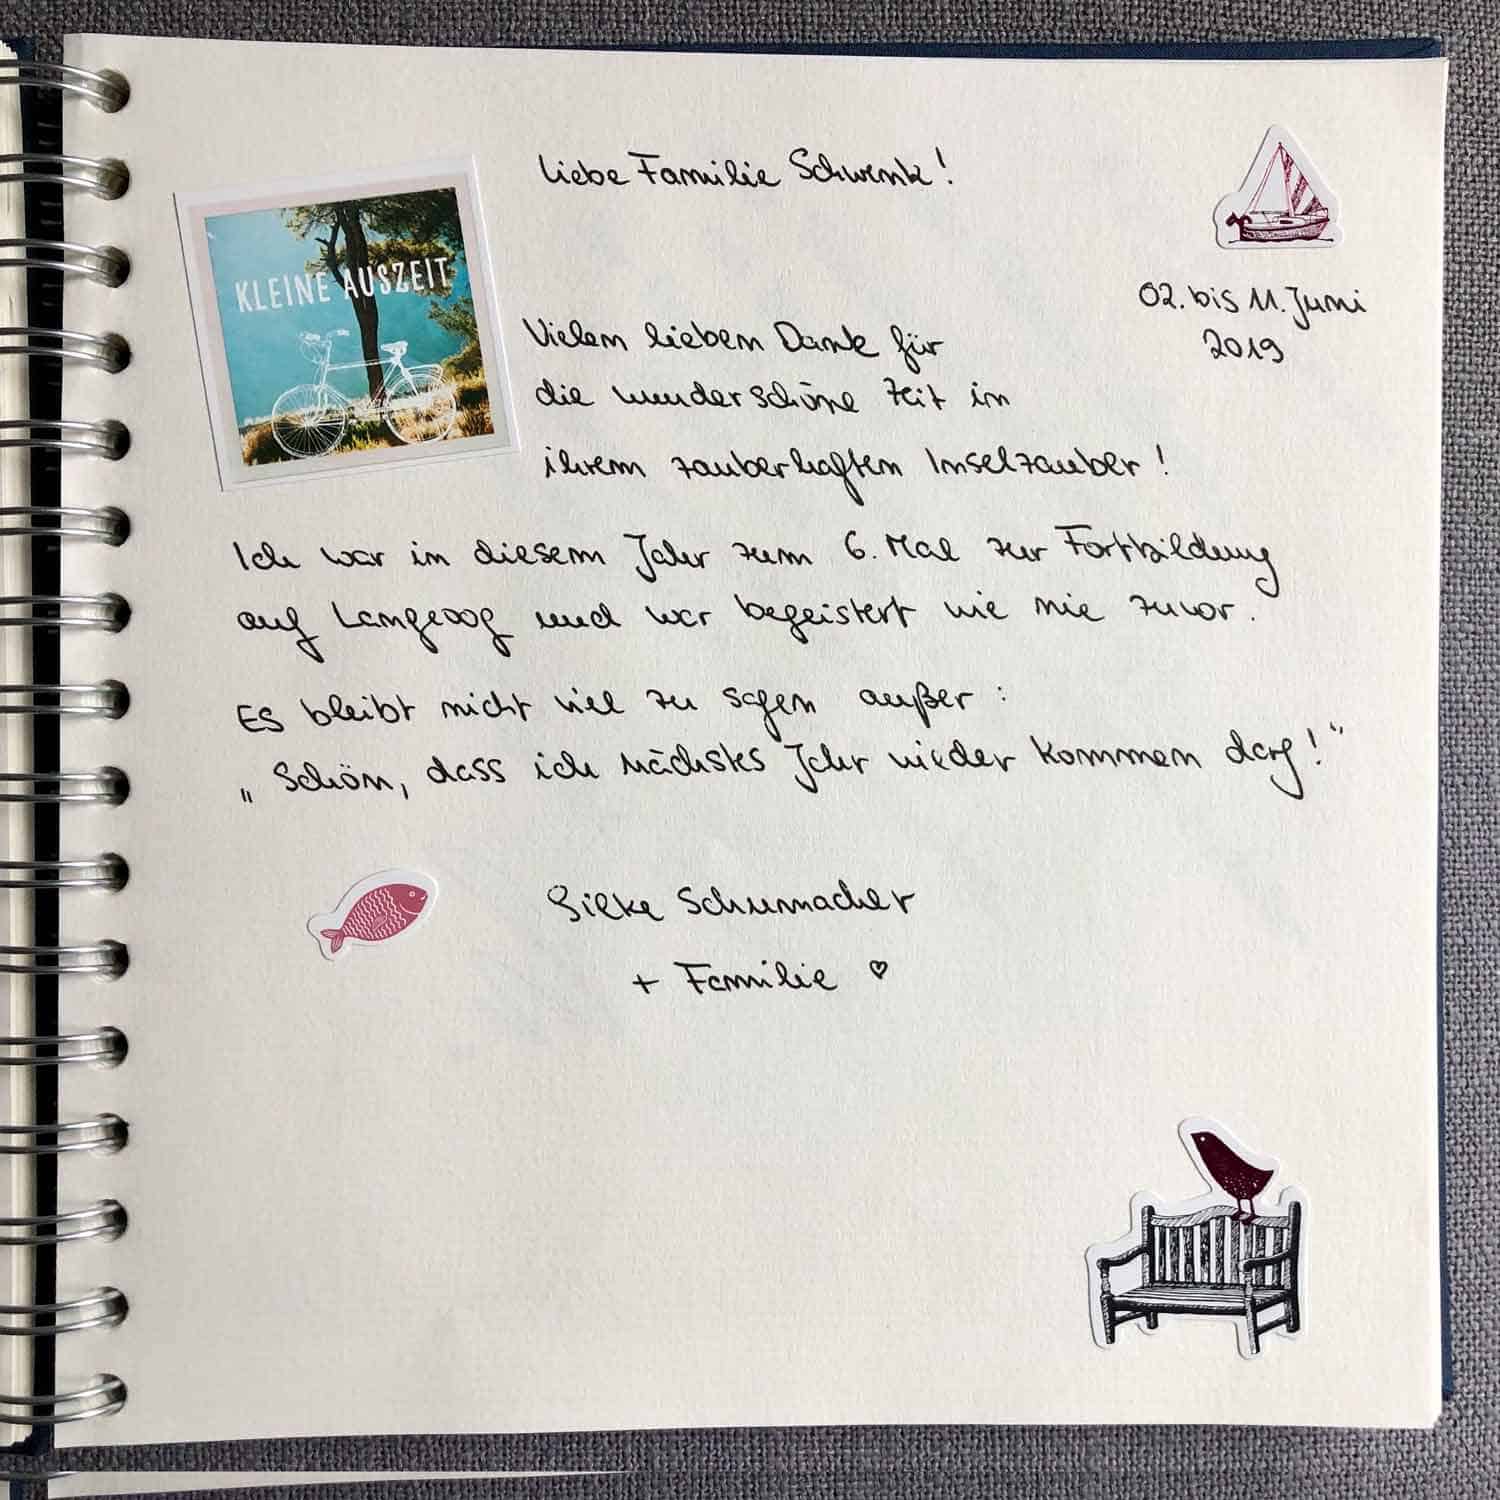 Liebe Familie Schwenk!
KLEINE AUSZEIT
02. bis 11. Juni
2019
Vielen lieben Dank für
die wunderschöne Zeit in
ihrem zauberhaften Inselzauber!
Ich war in diesem Jahr zum 6. Mal zur Fortbildung
auf Langeoog und war begeistert wie nie zuvor.
Es bleibt nicht viel zu sagen außer:
„Schön, dass ich nächstes Jahr wieder kommen darf!“
Silke Schumacher
+ Familie ♡